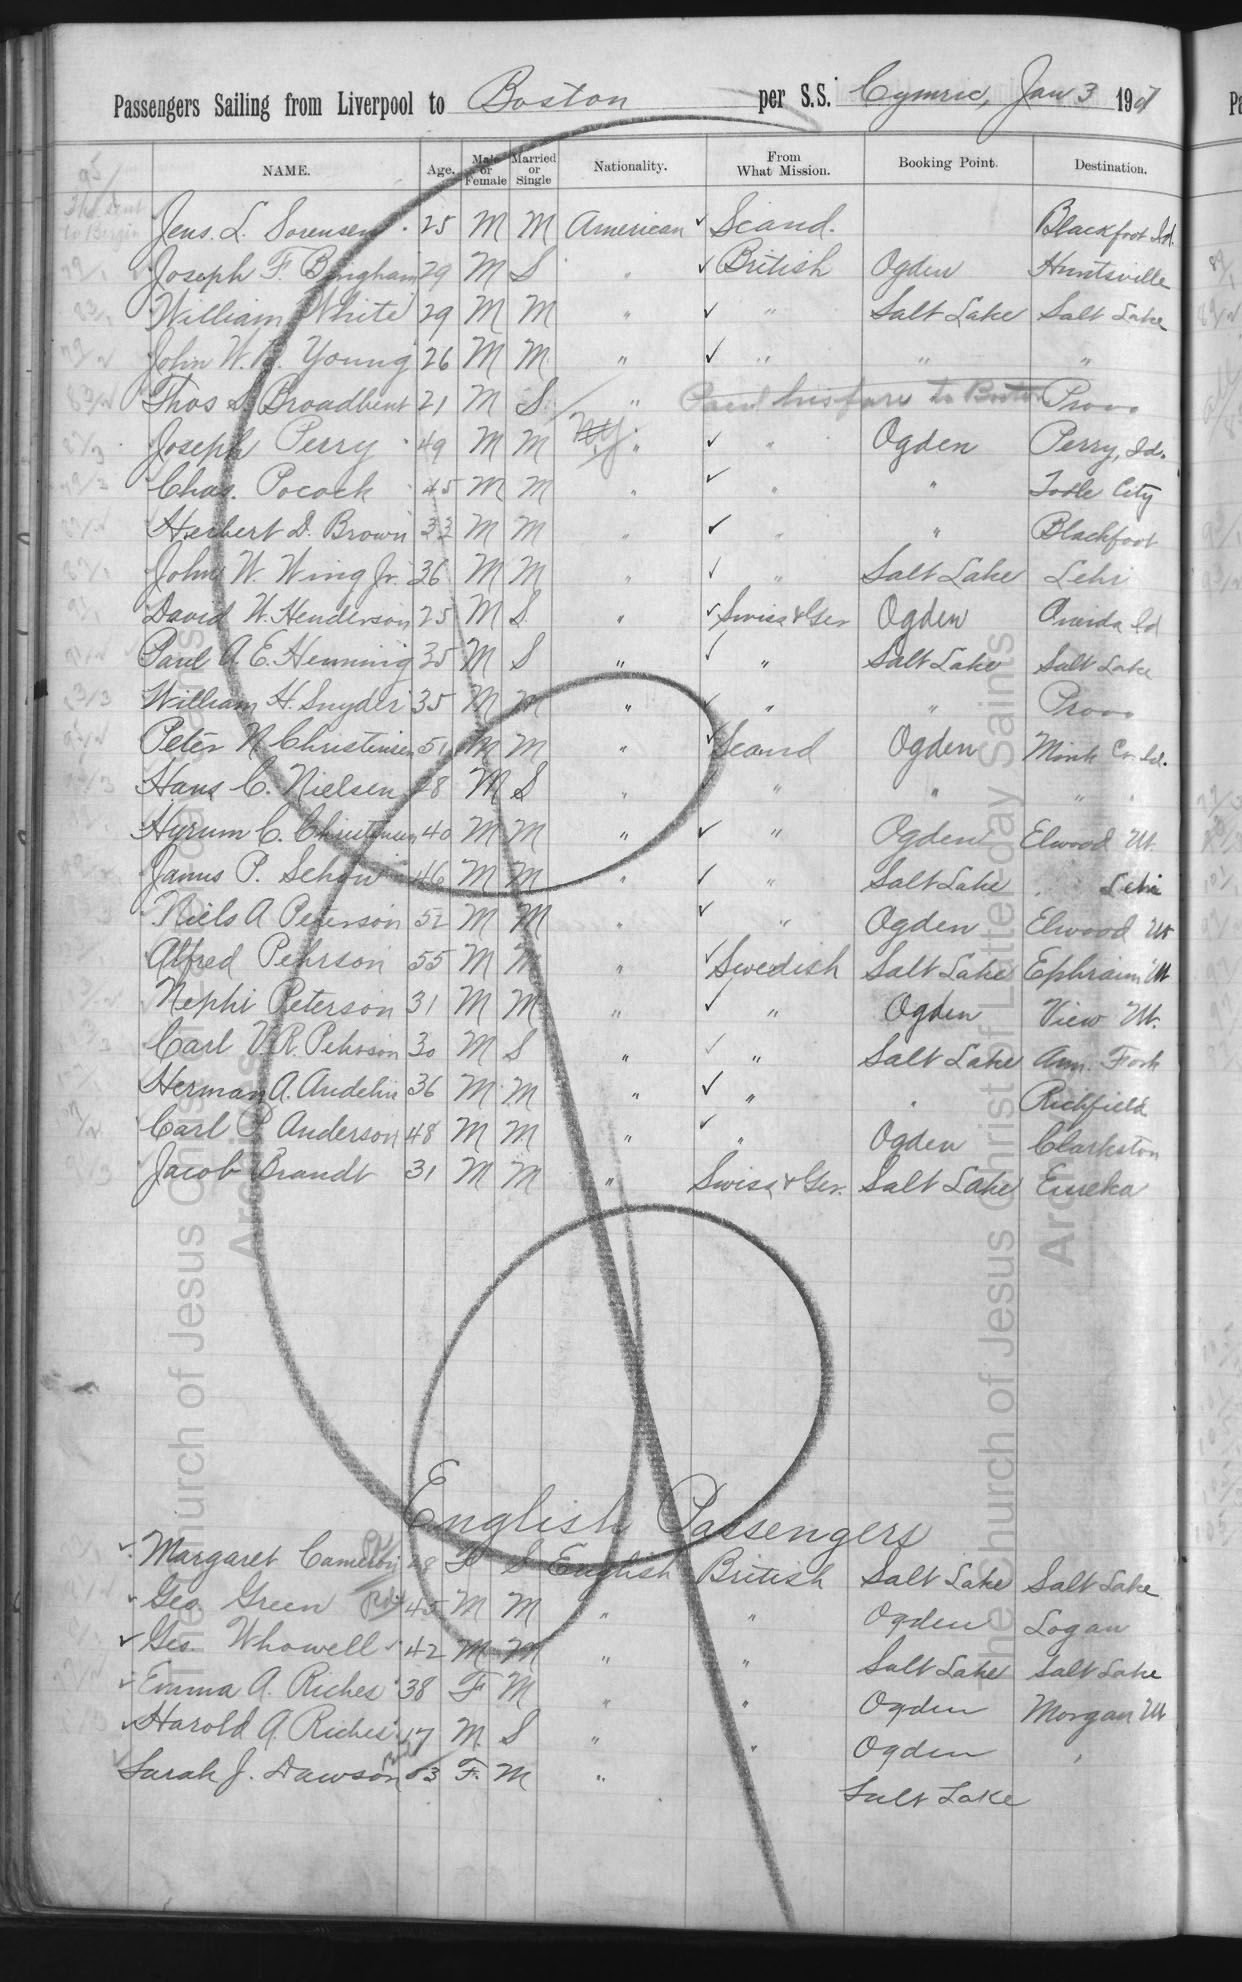 Passengers Sailing from Liverpool to Boston per S.S. Cymric, Jan 3 190
NAME. Age. Male or Female Married or Single Nationality. From What Mission. Booking Point. Destination.
Jens. L. Sorensen 25 M M American ✓ Scand. Blackfoot Id.
Joseph F. Bingham 29 M S " ✓ British Ogden Huntsville
William White 29 M M " ✓ " Salt Lake Salt Lake
John W. Young 26 M M " ✓ " " "
Thos Broadbent 21 M S " Paid his fare to Boston Provo
Joseph Perry 49 M M " ✓ " Ogden Perry, Id.
Chas. Pocock 45 M M " ✓ " " Tooele City
Herbert D. Brown 33 M M " ✓ " " Blackfoot
John W. Wing Jr. 36 M M " ✓ " Salt Lake Lehi
David W. Henderson 25 M S. " ✓ Swiss & Ger Ogden Oneida Id
Paul A. E. Henning 35 M S " ✓ " Salt Lake Salt Lake
William H. Snyder 35 M M " ✓ " " Provo
Peter N Christensen 51 M M " ✓ Scand Ogden Mink Cr. Id.
Hans C. Nielsen 28 M S " " " "
Hyrum C. Christensen 40 M M " ✓ " Ogden Elwood Ut.
James P. Schow 46 M M " ✓ " Salt Lake Lehi
Niels A Peterson 52 M M " ✓ " Ogden Elwood Ut
Alfred Pehrson 55 M M " ✓ Swedish Salt Lake Ephraim Ut
Nephi Peterson 31 M M " ✓ " Ogden View Ut.
Carl V. R. Pehrson 30 M S " ✓ " Salt Lake Am. Fork
Herman A. Andelin 36 M M " ✓ " " Richfield
Carl P Anderson 48 M M " ✓ " Ogden Clarkston
Jacob Brandt 31 M M " Swiss & Ger. Salt Lake Eureka
English Passengers
✓ Margaret Cameron 28 F S English British Salt Lake Salt Lake
Geo. Green 45 M M " " Ogden Logan
✓ Geo. Whowell 42 M M " " Salt Lake Salt Lake
✓ Emma A. Riches 38 F M " " Ogden Morgan Ut
✓ Harold A. Riches 17 M. S " " Ogden "
✓ Sarah J. Dawson 63 F. M " Salt Lake
The Church of Jesus Christ of Latter-day Saints
Archives
The Church of Jesus Christ of Latter-day Saints
Archives